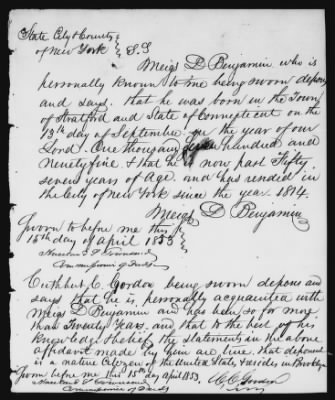 State City & County
of New York } S.S
Meigs D Benjamin who is
personally known to me being sworn deposes
and says. that he was born in the Town
of Stratford and State of Connecticut on the
13th day of September in the year of our
Lord. One thousand Seven hundred and
Ninety five. & that he is now past Fifty
seven years of Age. and has resided in
the City of New York since the year 1814.
Meigs D Benjamin
Sworn to before me this
15th day of April 1853
Commissioner of Deeds
Cuthbert C. Gordon being sworn deposes and
says that he is personally acquainted with
Meigs D Benjamin and has been so for more
than Twenty Years and that to the best of his
knowledge & belief the statements in the above
affidavit made by him are true. That deponent
is a native Citizen of the United States & resides in Brooklyn
Sworn before me this 15th day April 1853.
C C Gordon
Commissioner of Deeds